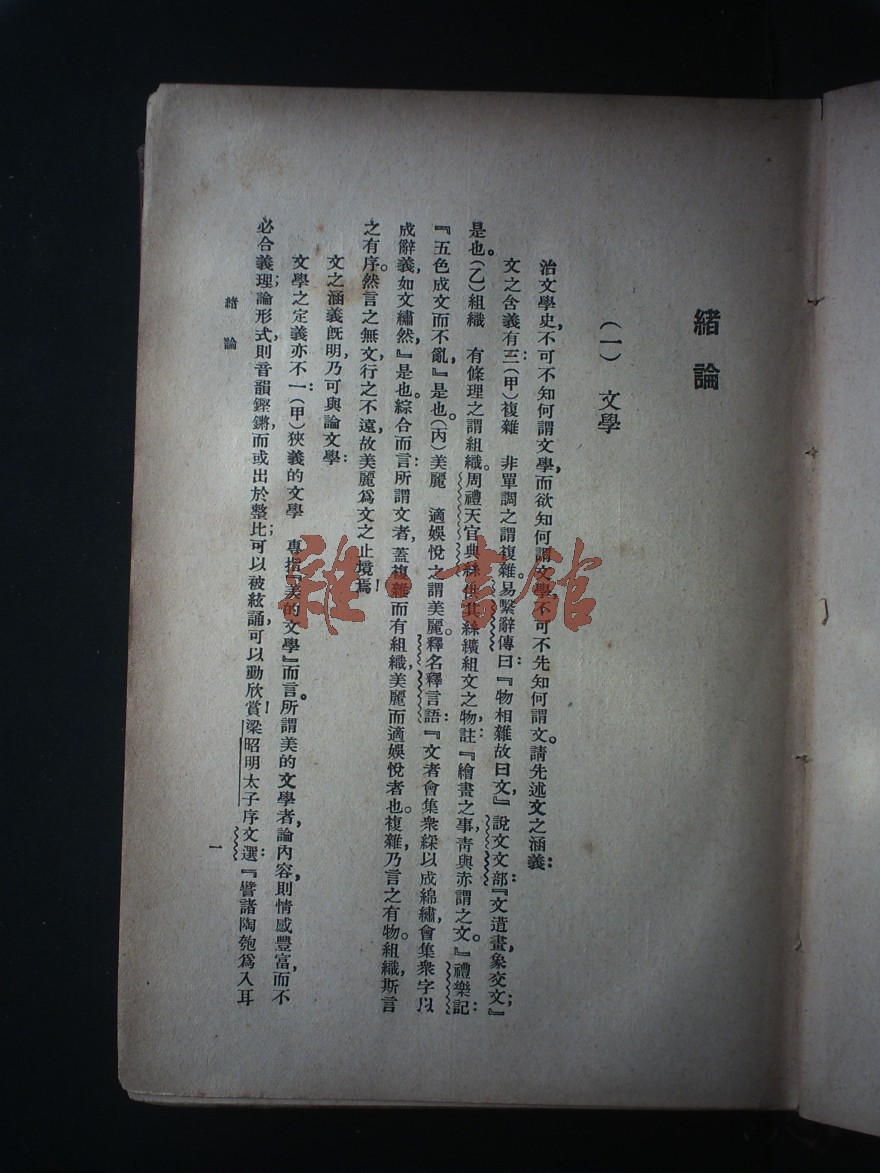 緒論
(一) 文學
治文學史,不可不知何謂文學;而欲知何謂文學,不可不先知何謂文。請先述文之涵義:
文之含義有三:(甲)複雜 非單調之謂複雜。易繫辭傳曰:『物相雜故曰文,』說文文部:『文造畫,象交文』
是也。(乙)組織 有條理之謂組織。周禮天官典絲供其絲纊組文之物,註:『繪畫之事,靑與赤謂之文。』禮樂記:
『五色成文而不亂,』是也。(丙)美麗 適娛悅之謂美麗。釋名釋言語:『文者會集衆綵以成綿繡,會集衆字以
成辭義,如文繡然,』是也。綜合而言:所謂文者,蓋複雜而有組織,美麗而適娛悅者也。複雜,乃言之有物。組織,斯言
之有序。然言之無文,行之不遠,故美麗爲文之止境焉!
文之涵義旣明,乃可與論文學:
文學之定義亦不一:(甲)狹義的文學 專指『美的文學』而言。所謂美的文學者,論內容,則情感豐富,而不
必合義理;論形式,則音韻鏗鏘,而或出於整比;可以被絃誦,可以動欣賞!梁昭明太子序文選:『譬諸陶匏爲入耳
緒論
一
雜·書館